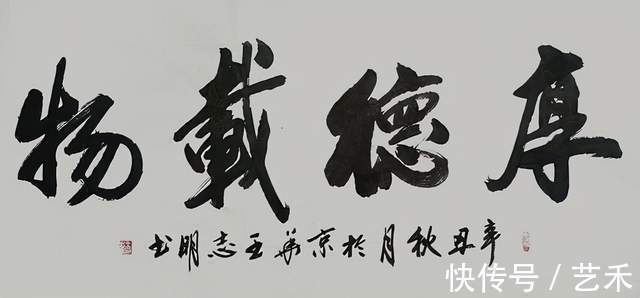 厚德載物
辛丑秋月於京華王志明书
快传号/艺禾